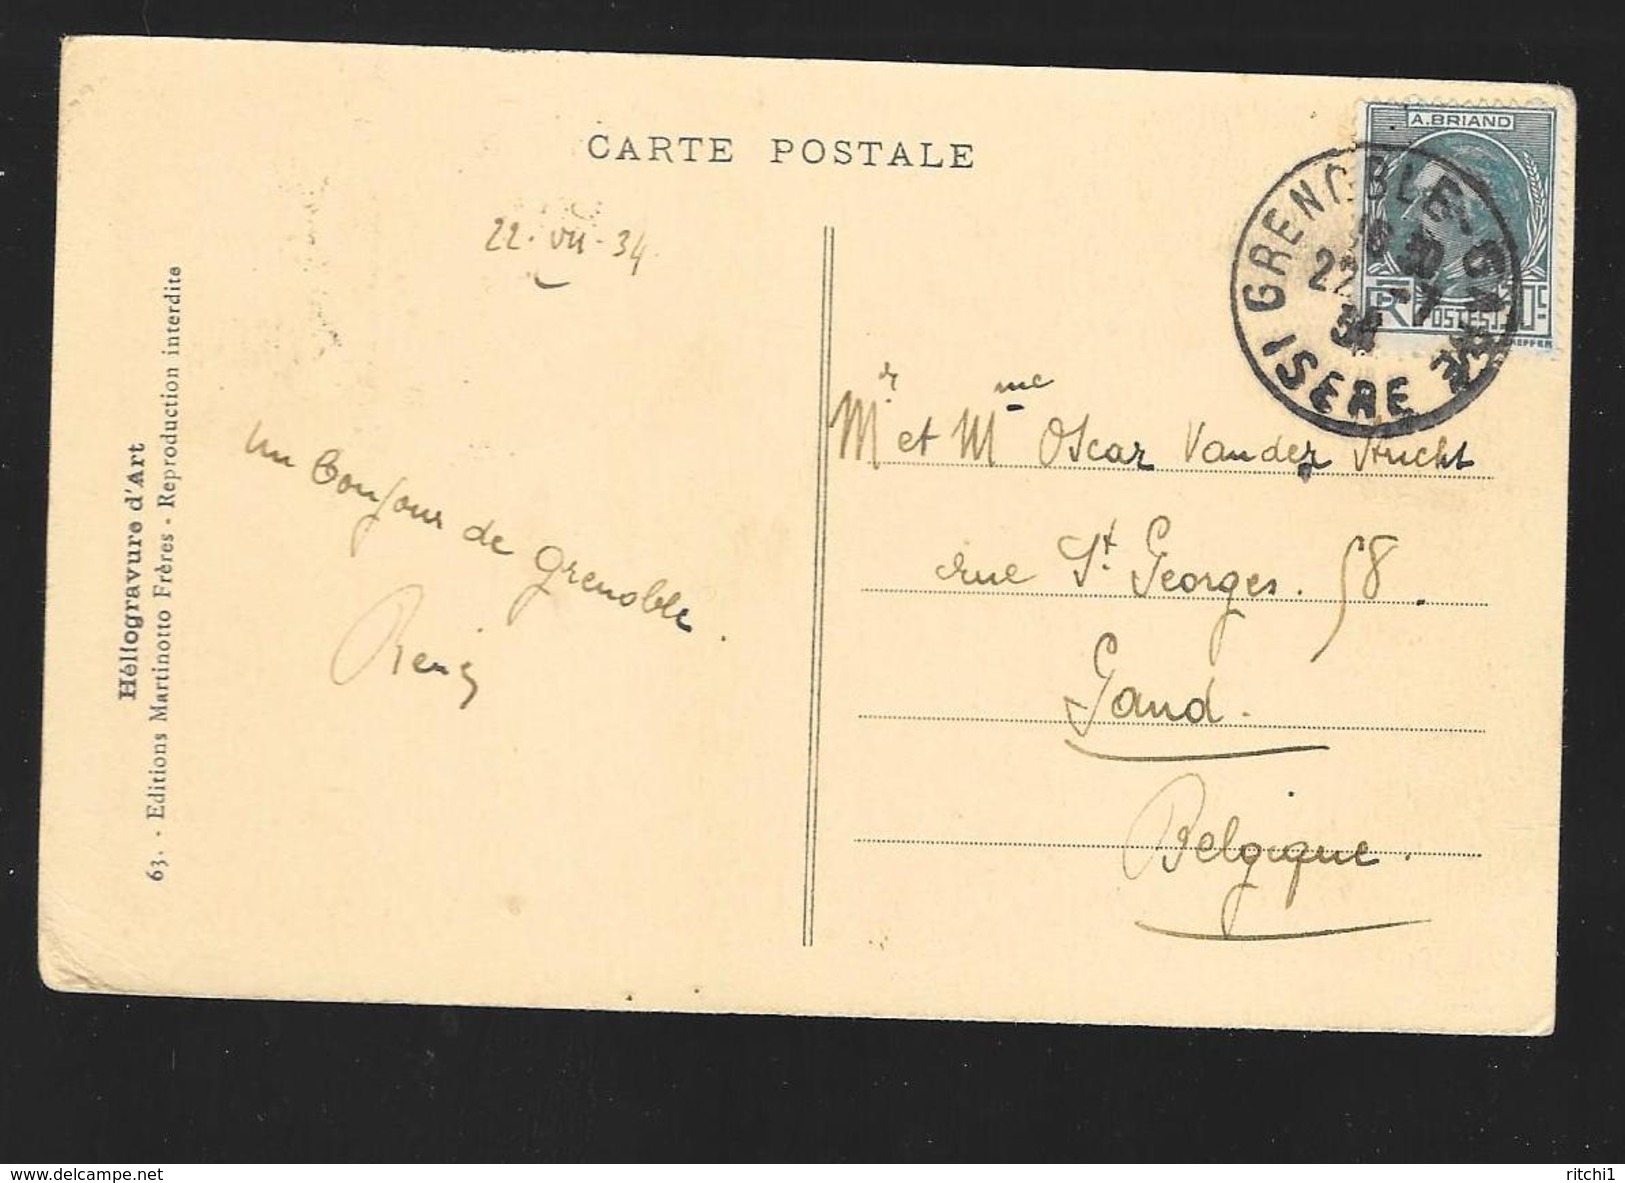 CARTE POSTALE
A.BRIAND
GRENOBLE-GARE
22 -7
34
ISERE
RF POSTES 30c
22. VII. 34
Mr et Mme Oscar Vander
rue St Georges. 58.
Gand.
Belgique.
un bonjour de Grenoble.
Héliogravure d'Art
63. - Editions Martinotto Frères - Reproduction interdite
delcampe.net
ritchi1